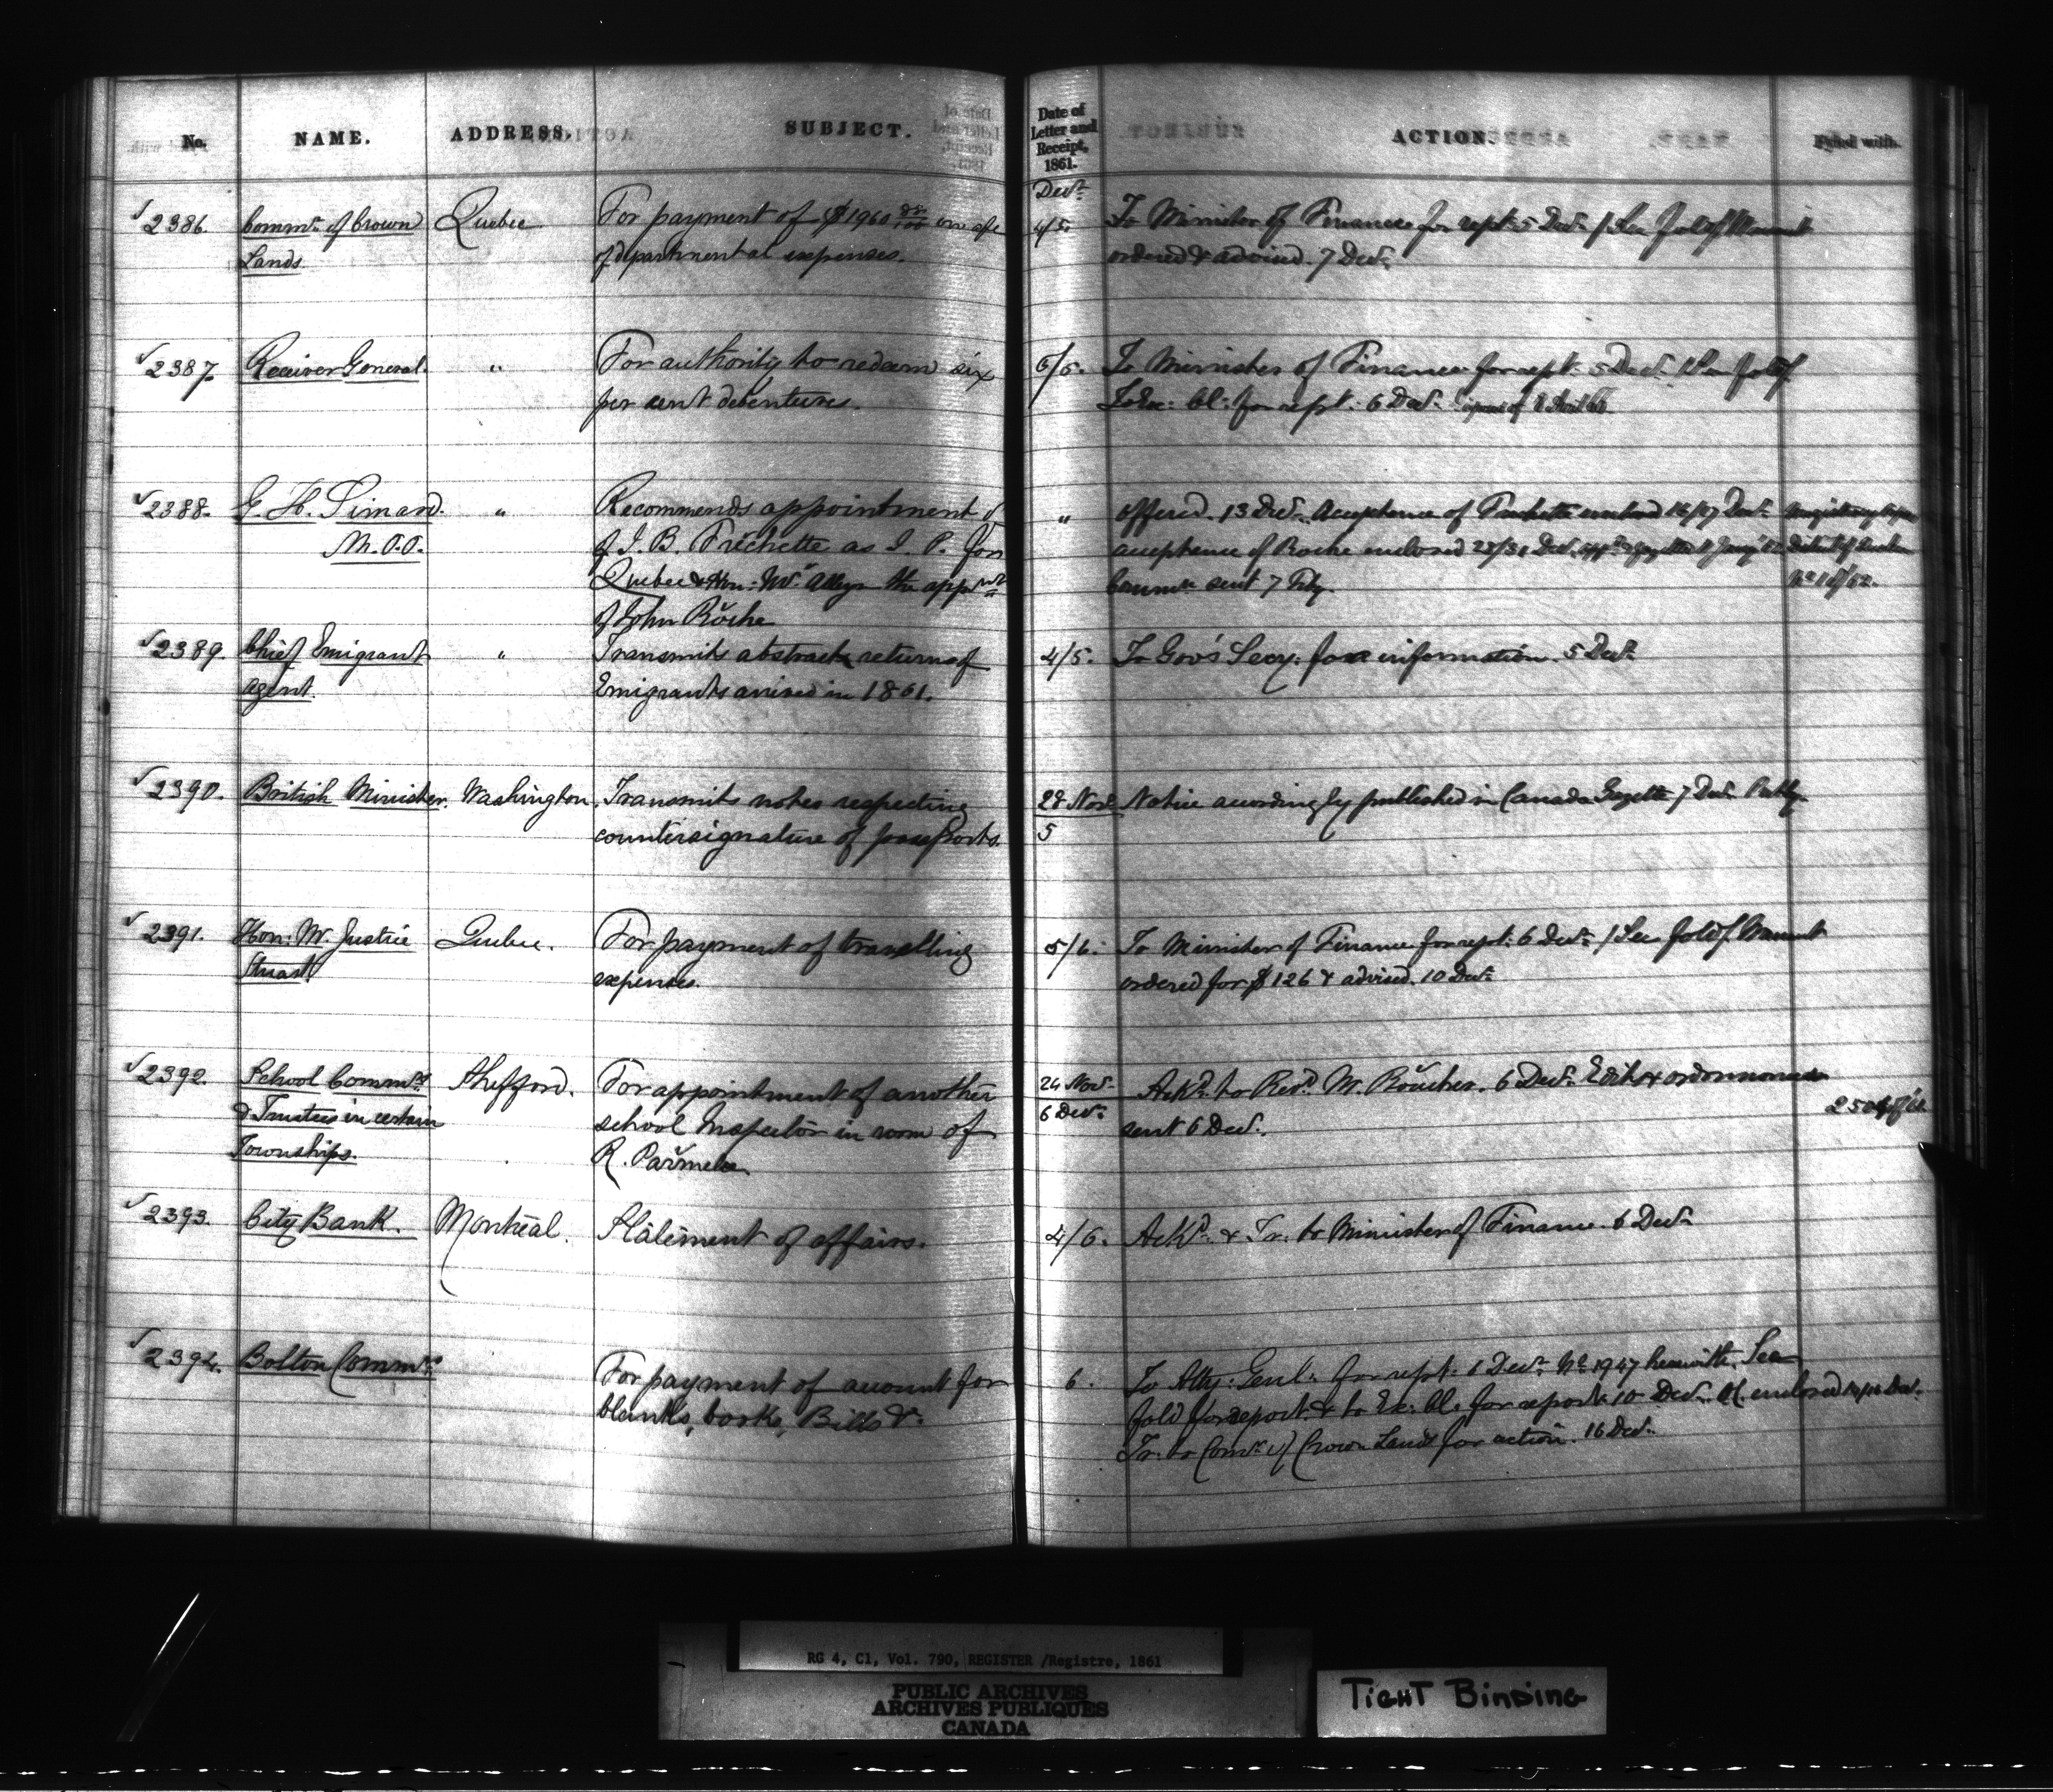 No. NAME. ADDRESS. SUBJECT. Date of Letter and Receipt, 1861. ACTION. Fyled with.
Decr
2386. Commr. of Crown Quebec For payment of $1960 on a/c 4/5. To Minister of Finance for rept. 5 Decr. / See fold/
Lands of departmental expenses. ordered & advised. 7 Decr.
2387. Receiver General. " For authority to redeem six 5/5. To Minister of Finance for rept. 5 Decr. / See fold/
per cent debentures. To Ex: Cl: for rept. 6 Decr.
2388. G. H. Simard. " Recommends appointment " offered. 13 Decr. Acceptance of Frechette 16/17 Decr.
M.P.P. of J. B. Frèchette as J. P. for acceptance of Roche enclosed 28/31 Decr.
Quebec & Hon: Mr. Alleyn the appmt sent 7 Feby.
of John Roche
2389. Chief Emigrant " Transmits abstract return of 4/5. To Gov's Secy. for information. 5 Decr.
Agent. Emigrants arrived in 1861.
2390. British Minister. Washington. Transmits notes respecting 28 Novr. Notice accordingly published in Canada Gazette 7 Decr.
countersignature of passports. 5
2391. Hon: Mr. Justice Quebec. For payment of travelling 5/6. To Minister of Finance for rept. 6 Decr. / See fold/ Warrant
Stuart expenses. ordered for $126 & advised. 10 Decr.
2392. School Commrs Shefford. For appointment of another 24 Novr. Ackd. to Revd. Mr. 6 Decr.
& Trustees in certain school Inspector in room of 6 Decr. sent 6 Decr.
Townships. R. Parmelee
2393. City Bank. Montreal. Statement of affairs. 4/6. Ackd. & Tr. to Minister of Finance 6 Decr.
2394. Bolton Commrs For payment of account for 6. To Atty. Genl. for rept. 6 Decr. No 1947 herewith. See
blanks, books, Bills &c. fold for report & to Ex: Cl. for report 10 Decr. enclosed
Tr. to Comr. of Crown Lands for action. 16 Decr.
RG 4, C1, Vol. 790, REGISTER /Registre, 1861
PUBLIC ARCHIVES
ARCHIVES PUBLIQUES
CANADA
TIGHT BINDING